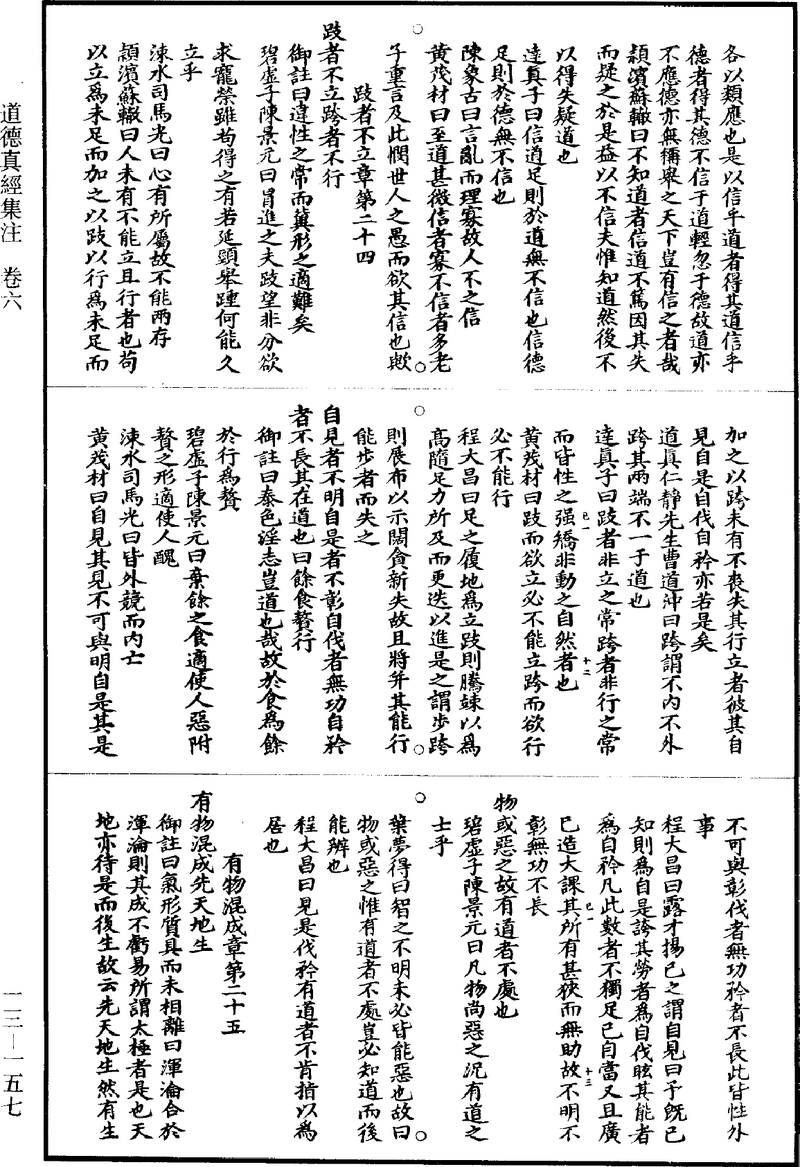 道德真經集注　卷六
一三—一五七
各以類應也是以信乎道者得其道信乎
德者得其德不信于道輕忽于德故道亦
不應德亦無稱舉之天下豈有信之者哉
頴濱蘇轍曰不知道者信道不篤因其失
而疑之於是益以不信夫惟知道然後不
以得失疑道也
達真子曰信道足則於道無不信也信德
足則於德無不信也
陳象古曰言亂而理寡故人不之信
黃茂材曰至道甚微信者寡不信者多老
子重言及此憫世人之愚而欲其信也歟
跂者不立章第二十四
跂者不立跨者不行
御註曰違性之常而冀形之適難矣
碧虛子陳景元曰冒進之夫跂望非分欲
求寵榮雖苟得之有若延頸舉踵何能久
立乎
涑水司馬光曰心有所屬故不能兩存
頴濱蘇轍曰人未有不能立且行者也苟
以立為未足而加之以跂以行為未足而
加之以跨未有不喪失其行立者彼其自
見自是自伐自矜亦若是矣
道真仁靜先生曹道沖曰跨謂不內不外
跨其兩端不一于道也
達真子曰跂者非立之常跨者非行之常
而皆性之强矯非動之自然者也
黃茂材曰跂而欲立必不能立跨而欲行
必不能行
程大昌曰足之履地為立跂則騰竦以為
高隨足力所及而更迭以進是之謂步跨
則展布以示闊貪新失故且將并其能行
能步者而失之
自見者不明自是者不彰自伐者無功自矜
者不長其在道也曰餘食贅行
御註曰泰色淫志豈道也哉故於食為餘
於行為贅
碧虛子陳景元曰棄餘之食適使人惡附
贅之形適使人醜
涑水司馬光曰皆外競而內亡
黃茂材曰自見其見不可與明自是其是
不可與彰伐者無功矜者不長此皆性外
事
程大昌曰露才揚己之謂自見曰予旣已
知則為自是誇其勞者為自伐眩其能者
為自矜凡此數者不獨足己自當又且廣
已造大課其所有甚狹而無助故不明不
彰無功不長
物或惡之故有道者不處也
碧虛子陳景元曰凡物尚惡之況有道之
士乎
葉夢得曰智之不明未必皆能惡也故曰
物或惡之惟有道者不處豈必知道而後
能辨也
程大昌曰見是伐矜有道者不肯指以為
居也
有物混成章第二十五
有物混成先天地生
御註曰氣形質具而未相離曰渾淪合於
渾淪則其成不虧易所謂太極者是也天
地亦待是而後生故云先天地生然有生